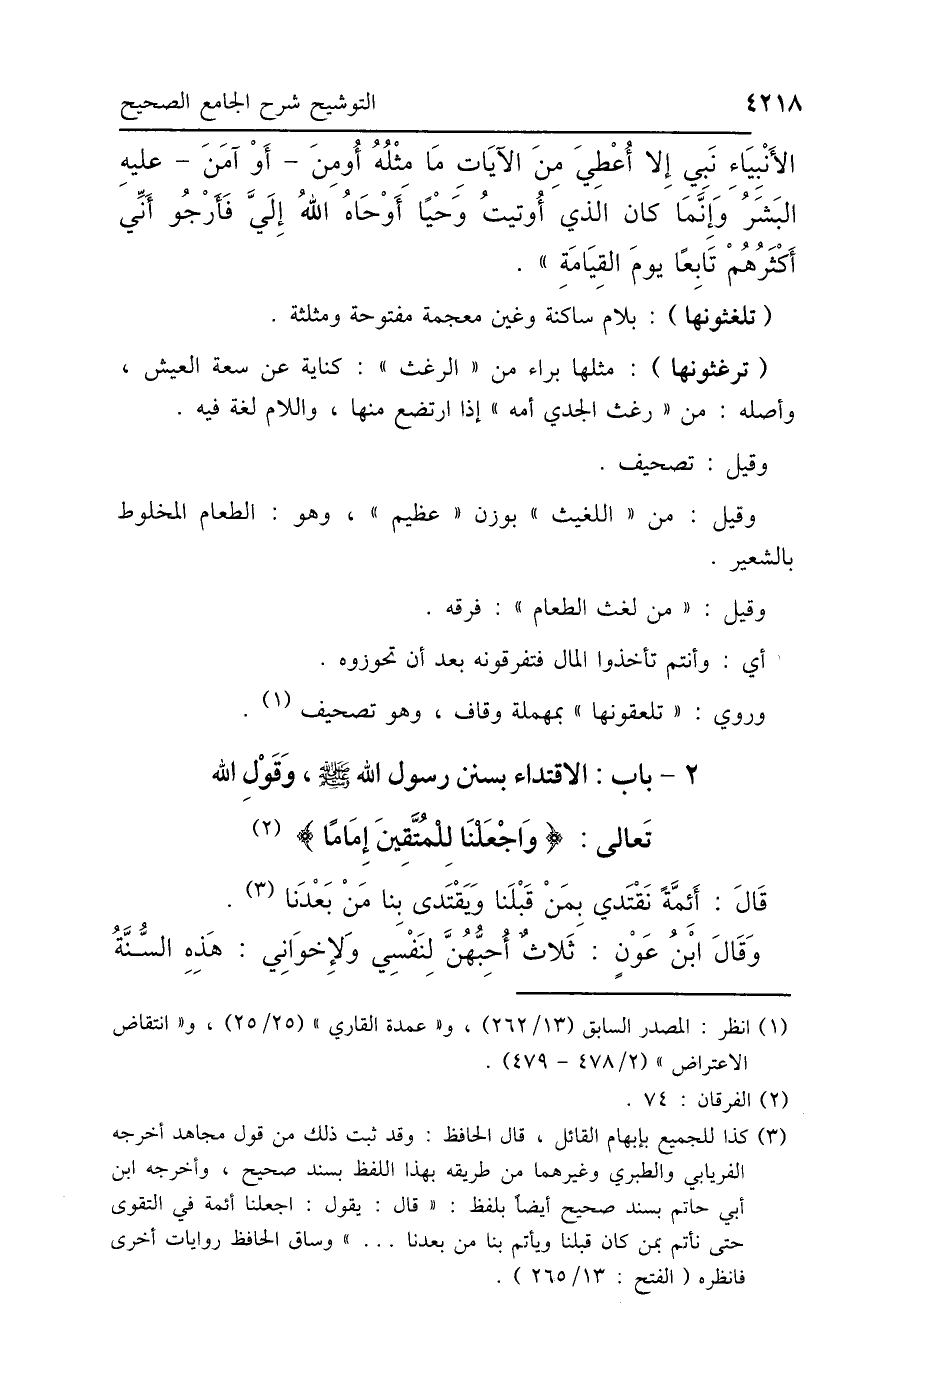 ٤٢١٨ التوشيح شرح الجامع الصحيح
الأَنْبِيَاءِ نَبِي إلا أُعْطِيَ مِنَ الآيَاتِ مَا مِثْلُهُ أُومِنَ – أَوْ آمَنَ – عليهِ
البَشَرُ وَإِنَّمَا كان الذي أُوتيتُ وَحْيًا أَوْحَاهُ اللهُ إلَيَّ فَأَرْجُو أَنِّي
أَكْثَرُهُمْ تَابِعًا يومَ القِيَامَةِ » .
( تلغثونها ) : بلام ساكنة وغين معجمة مفتوحة ومثلثة .
( ترغثونها ) : مثلها براء من « الرغث » : كناية عن سعة العيش ،
وأصله : من « رغث الجدي أمه » إذا ارتضع منها ، واللام لغة فيه .
وقيل : تصحيف .
وقيل : من « اللغيث » بوزن « عظيم » ، وهو : الطعام المخلوط
بالشعير .
وقيل : « من لغث الطعام » : فرقه .
أي : وأنتم تأخذوا المال فتفرقونه بعد أن تحوزوه .
وروي : « تلعقونها » بمهملة وقاف ، وهو تصحيف (١) .
٢ – باب : الاقتداء بسنن رسول الله ﷺ ، وَقَوْلِ الله
تَعالى : ﴿ وَاجْعَلْنَا لِلْمُتَّقِينَ إِمَامًا ﴾ (٢)
قَالَ : أَئِمَّةً نَقْتَدي بِمَنْ قَبْلَنَا وَيَقْتَدى بِنا مَنْ بَعْدَنَا (٣) .
وَقَالَ ابْنُ عَوْنٍ : ثَلاثٌ أُحِبُّهُنَّ لِنَفْسِي وَلإِخوَانِي : هَذِهِ السُّنَّةُ
(١) انظر : المصدر السابق (٢٦٢/١٣) ، و« عمدة القاري » (٢٥/٢٥) ، و« انتقاض
الاعتراض » (٤٧٨/٢ – ٤٧٩) .
(٢) الفرقان : ٧٤ .
(٣) كذا للجميع بإبهام القائل ، قال الحافظ : وقد ثبت ذلك من قول مجاهد أخرجه
الفريابي والطبري وغيرهما من طريقه بهذا اللفظ بسند صحيح ، وأخرجه ابن
أبي حاتم بسند صحيح أيضاً بلفظ : « قال : يقول : اجعلنا أئمة في التقوى
حتى نأتم بمن كان قبلنا ويأتم بنا من بعدنا ... » وساق الحافظ روايات أخرى
فانظره ( الفتح : ٢٦٥/١٣ ) .